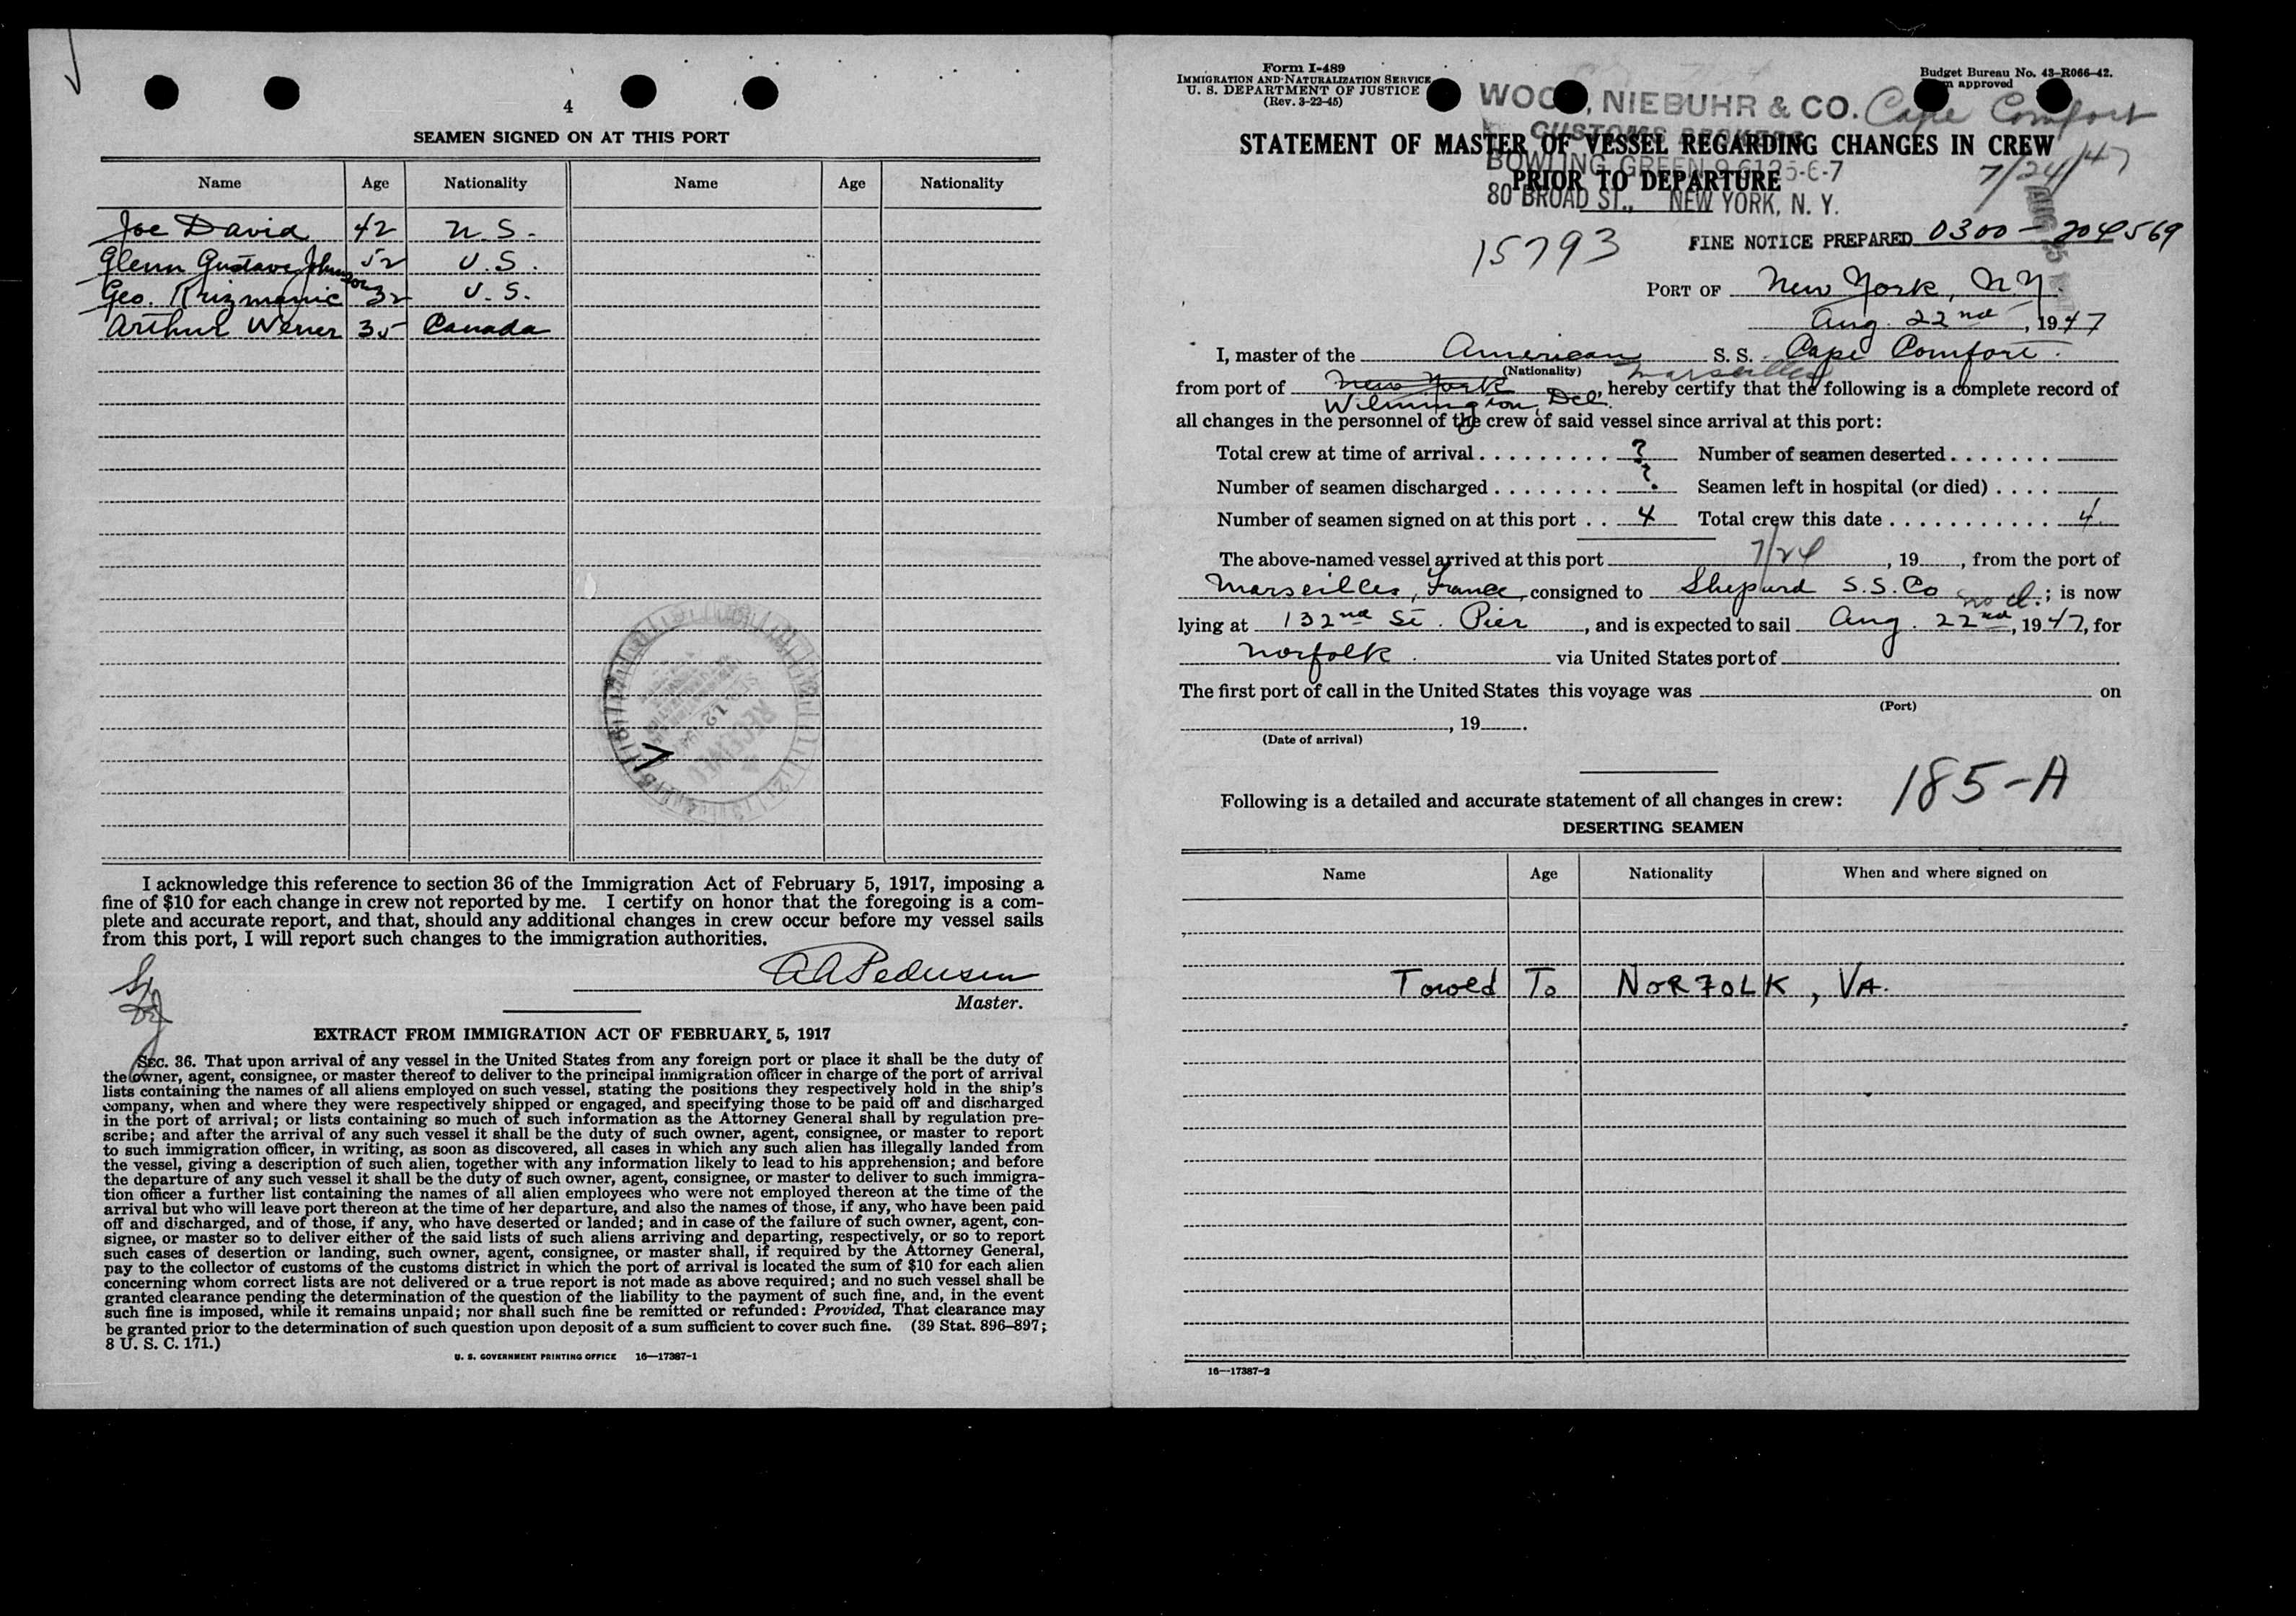 4
SEAMEN SIGNED ON AT THIS PORT
Name Age Nationality Name Age Nationality
Joe David 42 U.S.
Glenn Gustave Johnson 52 U.S.
Geo. Krizmanic 32 U.S.
Arthur Werner 35 Canada
RECEIVED
I acknowledge this reference to section 36 of the Immigration Act of February 5, 1917, imposing a
fine of $10 for each change in crew not reported by me. I certify on honor that the foregoing is a com-
plete and accurate report, and that, should any additional changes in crew occur before my vessel sails
from this port, I will report such changes to the immigration authorities.
AA Pedersen
Master.
EXTRACT FROM IMMIGRATION ACT OF FEBRUARY 5, 1917
SEC. 36. That upon arrival of any vessel in the United States from any foreign port or place it shall be the duty of
the owner, agent, consignee, or master thereof to deliver to the principal immigration officer in charge of the port of arrival
lists containing the names of all aliens employed on such vessel, stating the positions they respectively hold in the ship's
company, when and where they were respectively shipped or engaged, and specifying those to be paid off and discharged
in the port of arrival; or lists containing so much of such information as the Attorney General shall by regulation pre-
scribe; and after the arrival of any such vessel it shall be the duty of such owner, agent, consignee, or master to report
to such immigration officer, in writing, as soon as discovered, all cases in which any such alien has illegally landed from
the vessel, giving a description of such alien, together with any information likely to lead to his apprehension; and before
the departure of any such vessel it shall be the duty of such owner, agent, consignee, or master to deliver to such immigra-
tion officer a further list containing the names of all alien employees who were not employed thereon at the time of the
arrival but who will leave port thereon at the time of her departure, and also the names of those, if any, who have been paid
off and discharged, and of those, if any, who have deserted or landed; and in case of the failure of such owner, agent, con-
signee, or master so to deliver either of the said lists of such aliens arriving and departing, respectively, or so to report
such cases of desertion or landing, such owner, agent, consignee, or master shall, if required by the Attorney General,
pay to the collector of customs of the customs district in which the port of arrival is located the sum of $10 for each alien
concerning whom correct lists are not delivered or a true report is not made as above required; and no such vessel shall be
granted clearance pending the determination of the question of the liability to the payment of such fine, and, in the event
such fine is imposed, while it remains unpaid; nor shall such fine be remitted or refunded: Provided, That clearance may
be granted prior to the determination of such question upon deposit of a sum sufficient to cover such fine. (39 Stat. 896–897;
8 U. S. C. 171.)
U. S. GOVERNMENT PRINTING OFFICE 16—17387-1
Form I-489
IMMIGRATION AND NATURALIZATION SERVICE
U. S. DEPARTMENT OF JUSTICE
(Rev. 3-22-45)
Budget Bureau No. 43-R066-42.
approved
NIEBUHR & CO. Cape Comfort
CUSTOMS BROKERS
STATEMENT OF MASTER OF VESSEL REGARDING CHANGES IN CREW
BOWLING GREEN 9-6125-6-7 7/24/47
PRIOR TO DEPARTURE
80 BROAD ST., NEW YORK, N. Y.
15793 FINE NOTICE PREPARED 0300 - 204569
PORT OF New York, N.Y.
Aug. 22nd, 1947
I, master of the American S. S. Cape Comfort.
(Nationality) Marseilles
from port of New York, hereby certify that the following is a complete record of
Wilmington, Del.
all changes in the personnel of the crew of said vessel since arrival at this port:
Total crew at time of arrival . . . . . . . . . ? Number of seamen deserted . . . . . . .
Number of seamen discharged . . . . . . . . ? Seamen left in hospital (or died) . . . .
Number of seamen signed on at this port . . 4 Total crew this date . . . . . . . . . . . 4
The above-named vessel arrived at this port 7/24, 19 , from the port of
Marseilles, France, consigned to Shepard S.S. Co; is now
lying at 132nd St. Pier, and is expected to sail Aug. 22nd, 1947, for
Norfolk. via United States port of
The first port of call in the United States this voyage was on
(Port)
, 19 .
(Date of arrival)
185-A
Following is a detailed and accurate statement of all changes in crew:
DESERTING SEAMEN
Name Age Nationality When and where signed on
Towed To NORFOLK, VA.
16—17387-2